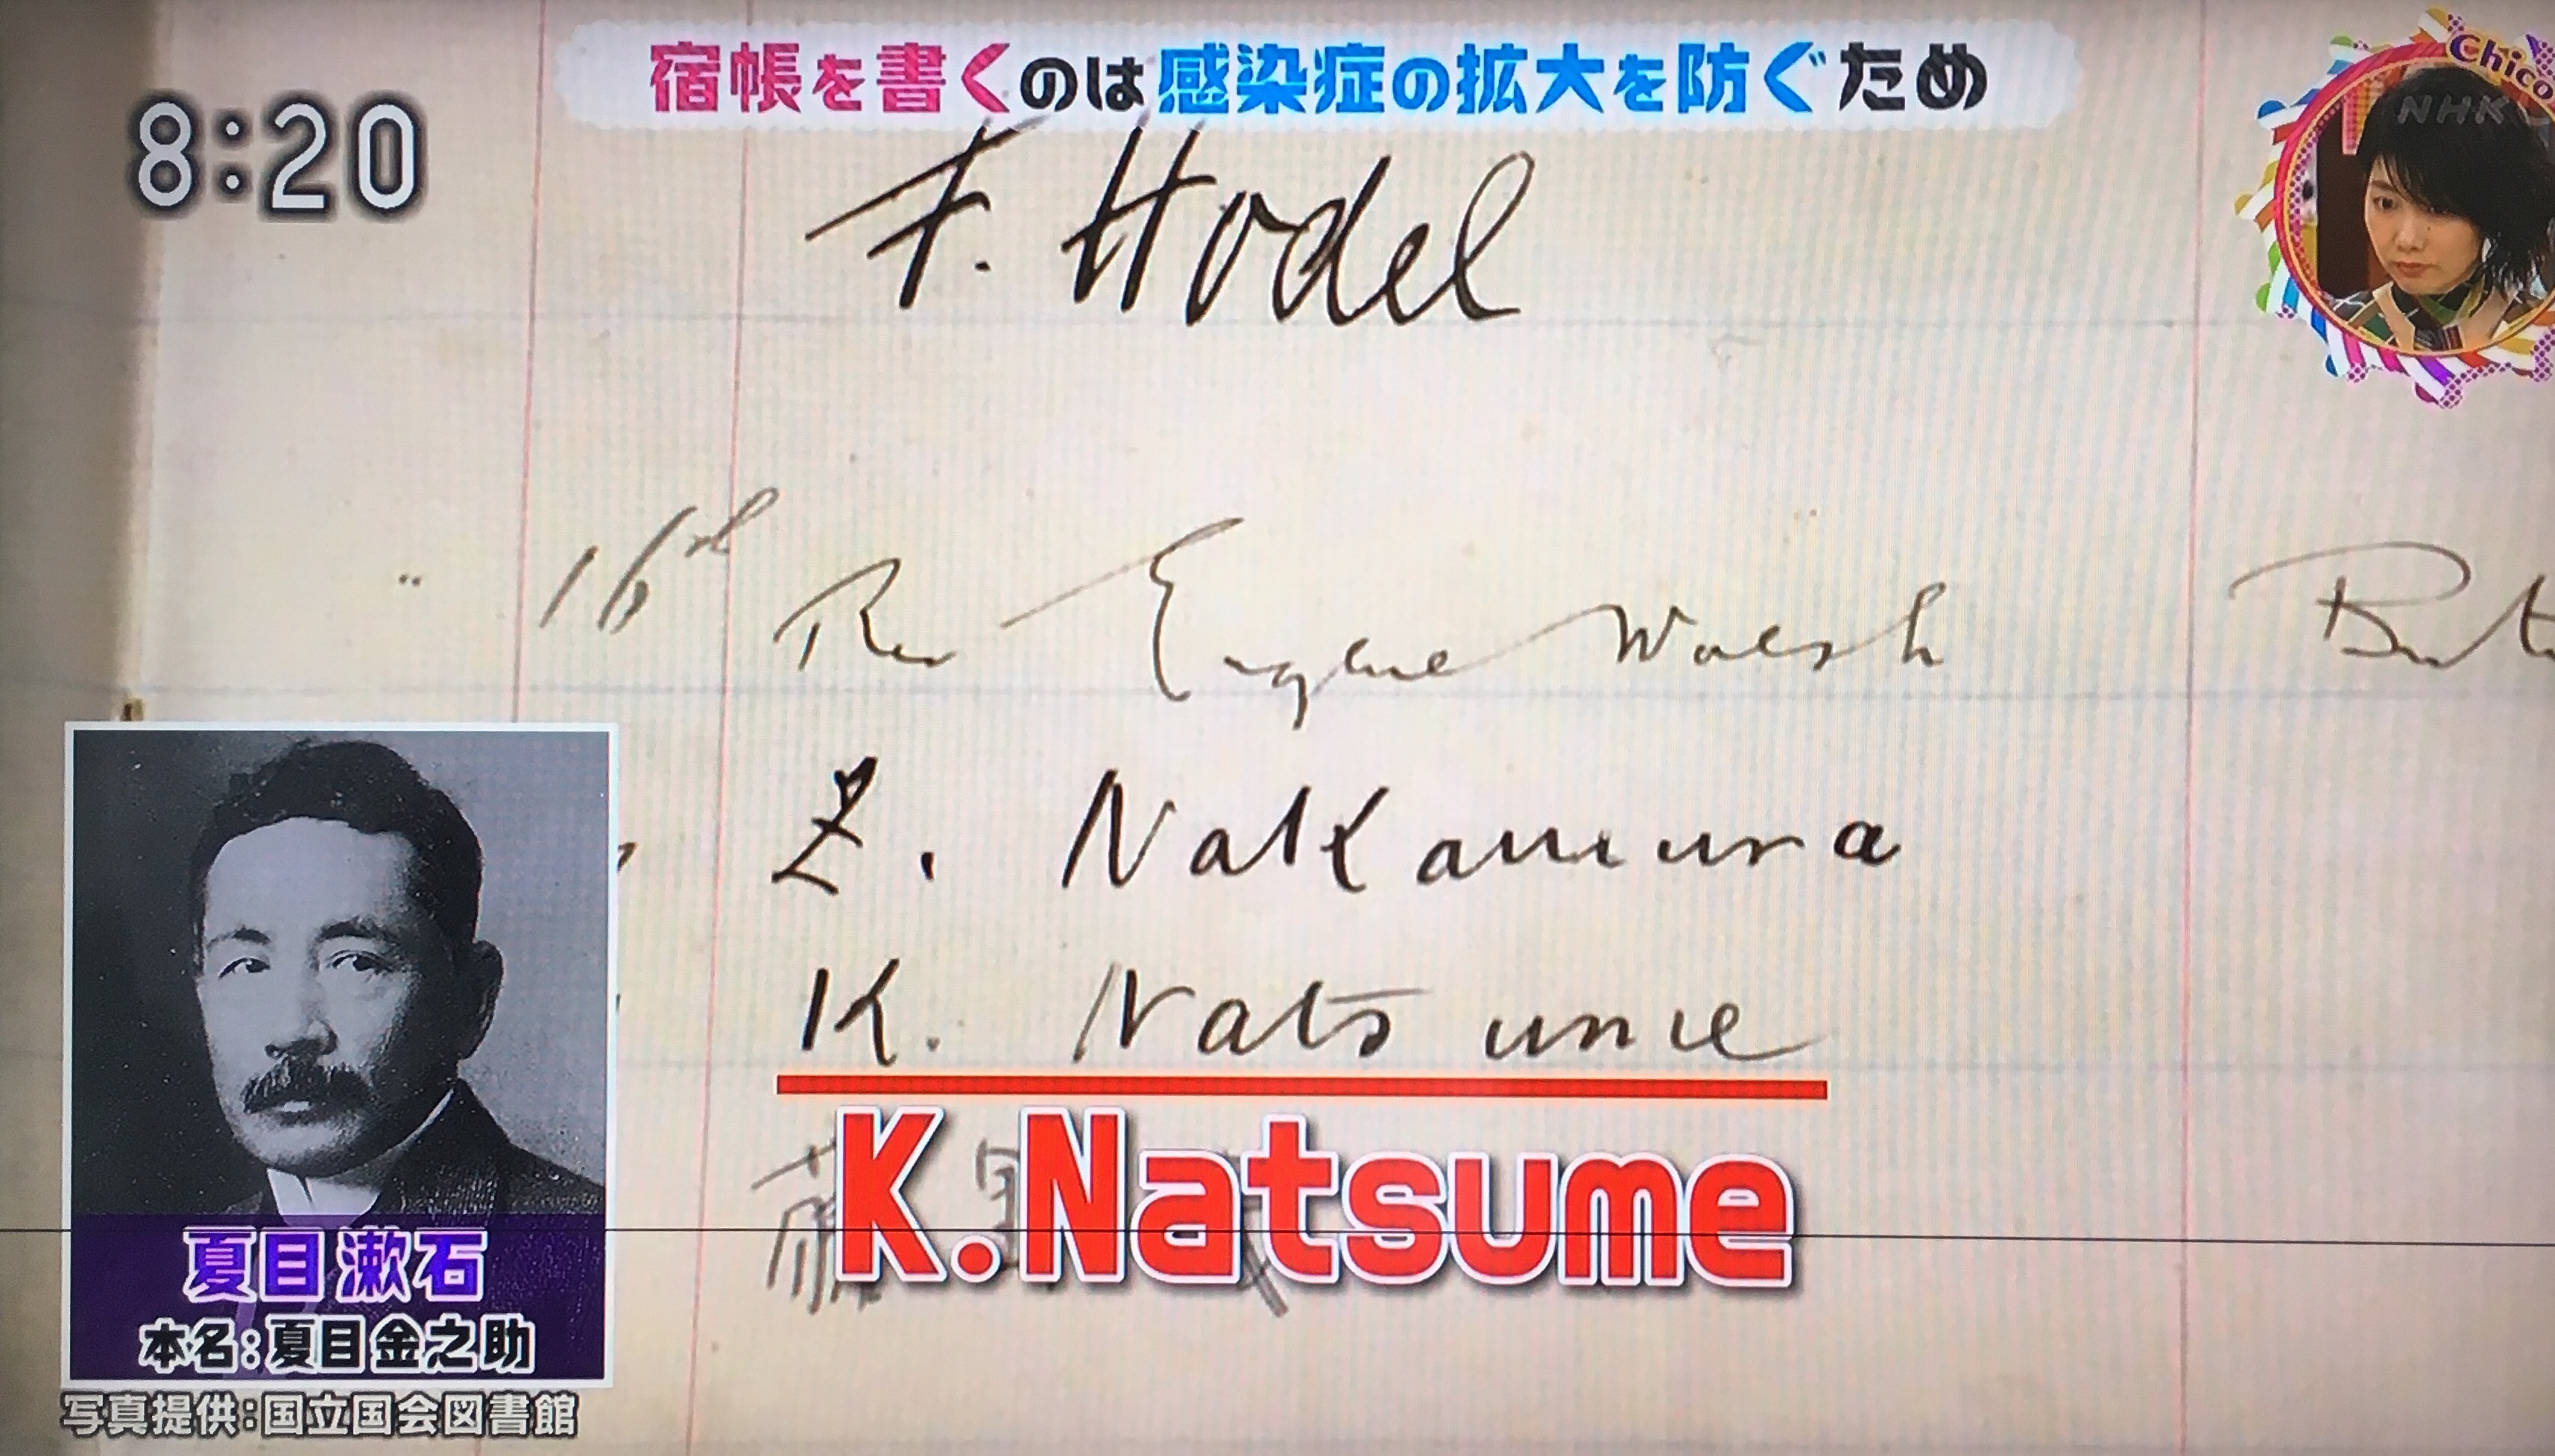 宿帳を書くのは感染症の拡大を防ぐため
Chico
NHK
8:20
F. Hodel
" 16th Rev Eugene Walsh
Z. Nakamura
K. Natsume
K.Natsume
夏目漱石
本名:夏目金之助
写真提供:国立国会図書館